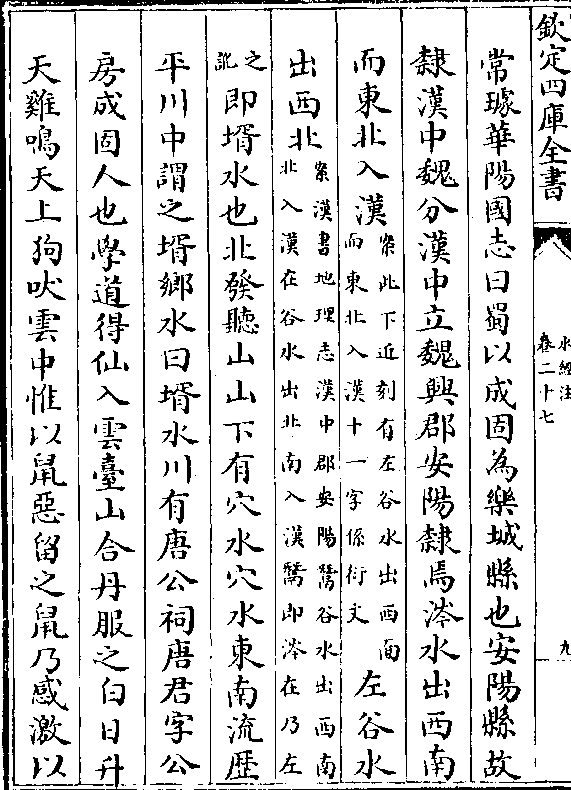 欽定四庫全書
水經注
卷二十七
九
常璩華陽國志曰蜀以成固為樂城縣也安陽縣故
隸漢中魏分漢中立魏興郡安陽隸焉涔水出西南
而東北入漢案此下近刻有左谷水出西南而東北入漢十一字係衍文左谷水
出西北案漢書地理志漢中郡安陽鬵谷水出西南北入漢在谷水出北南入漢鬵即涔在乃左
之訛即壻水也北發聽山山下有穴水穴水東南流歴
平川中謂之壻鄉水曰壻水川有唐公祠唐君字公
房成固人也學道得仙入雲臺山合丹服之白日升
天雞鳴天上狗吠雲中惟以鼠惡留之鼠乃感激以